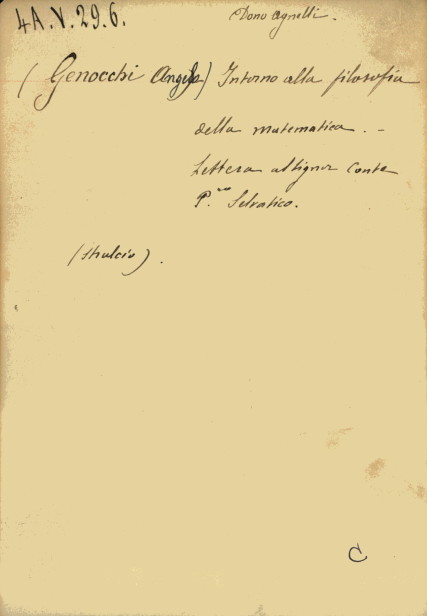 4A.V.29.6.
Dono Agnelli.
(Genocchi Angelo) Intorno alla filosofia
della matematica. -
Lettera al Signor Conte
P.ro Selvatico.
(stralcio).
C